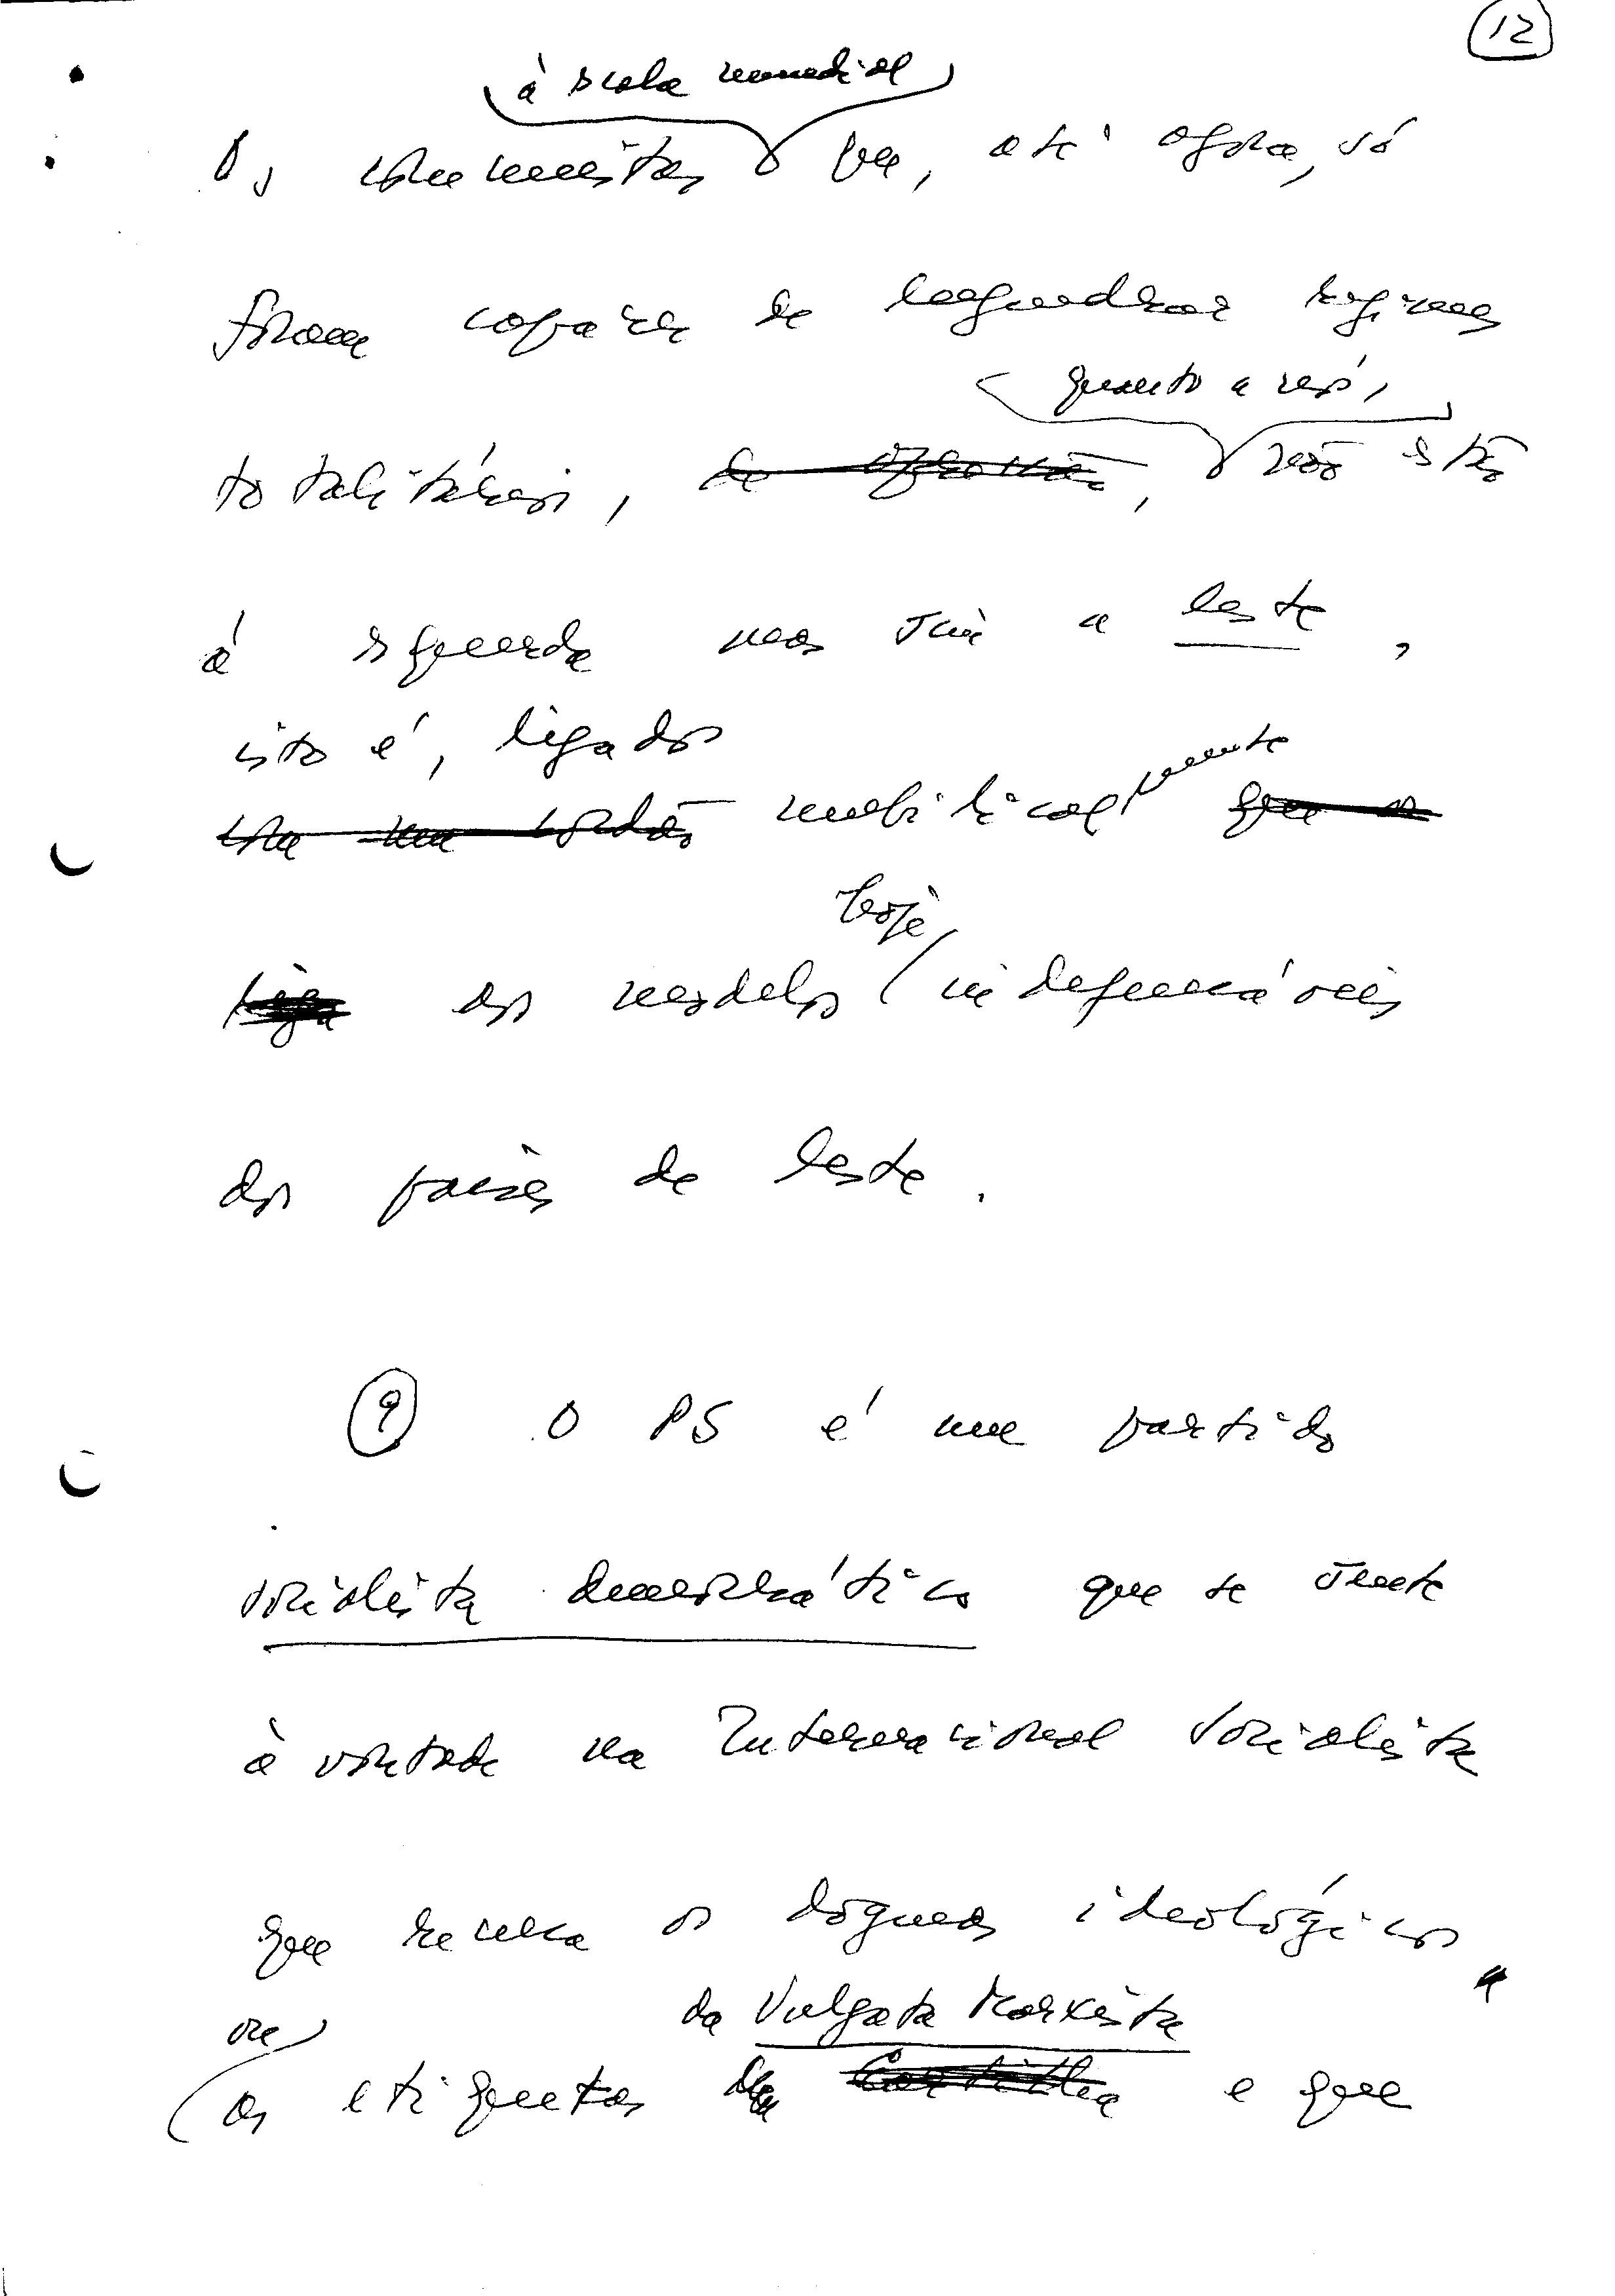 12
à escala mundial
Os comunistas que, até agora, só
foram capazes de engendrar regimes
quanto a nós,
totalitários, não estão
à esquerda mas sim a leste,
isto é, ligados
umbilicalmente
hoje
aos modelos indefensáveis
dos países de leste.
9 O PS é um partido
socialista democrático que se sente
à vontade na Internacional Socialista
que recusa os dogmas ideológicos
ou da Vulgata Marxista
as etiquetas e que